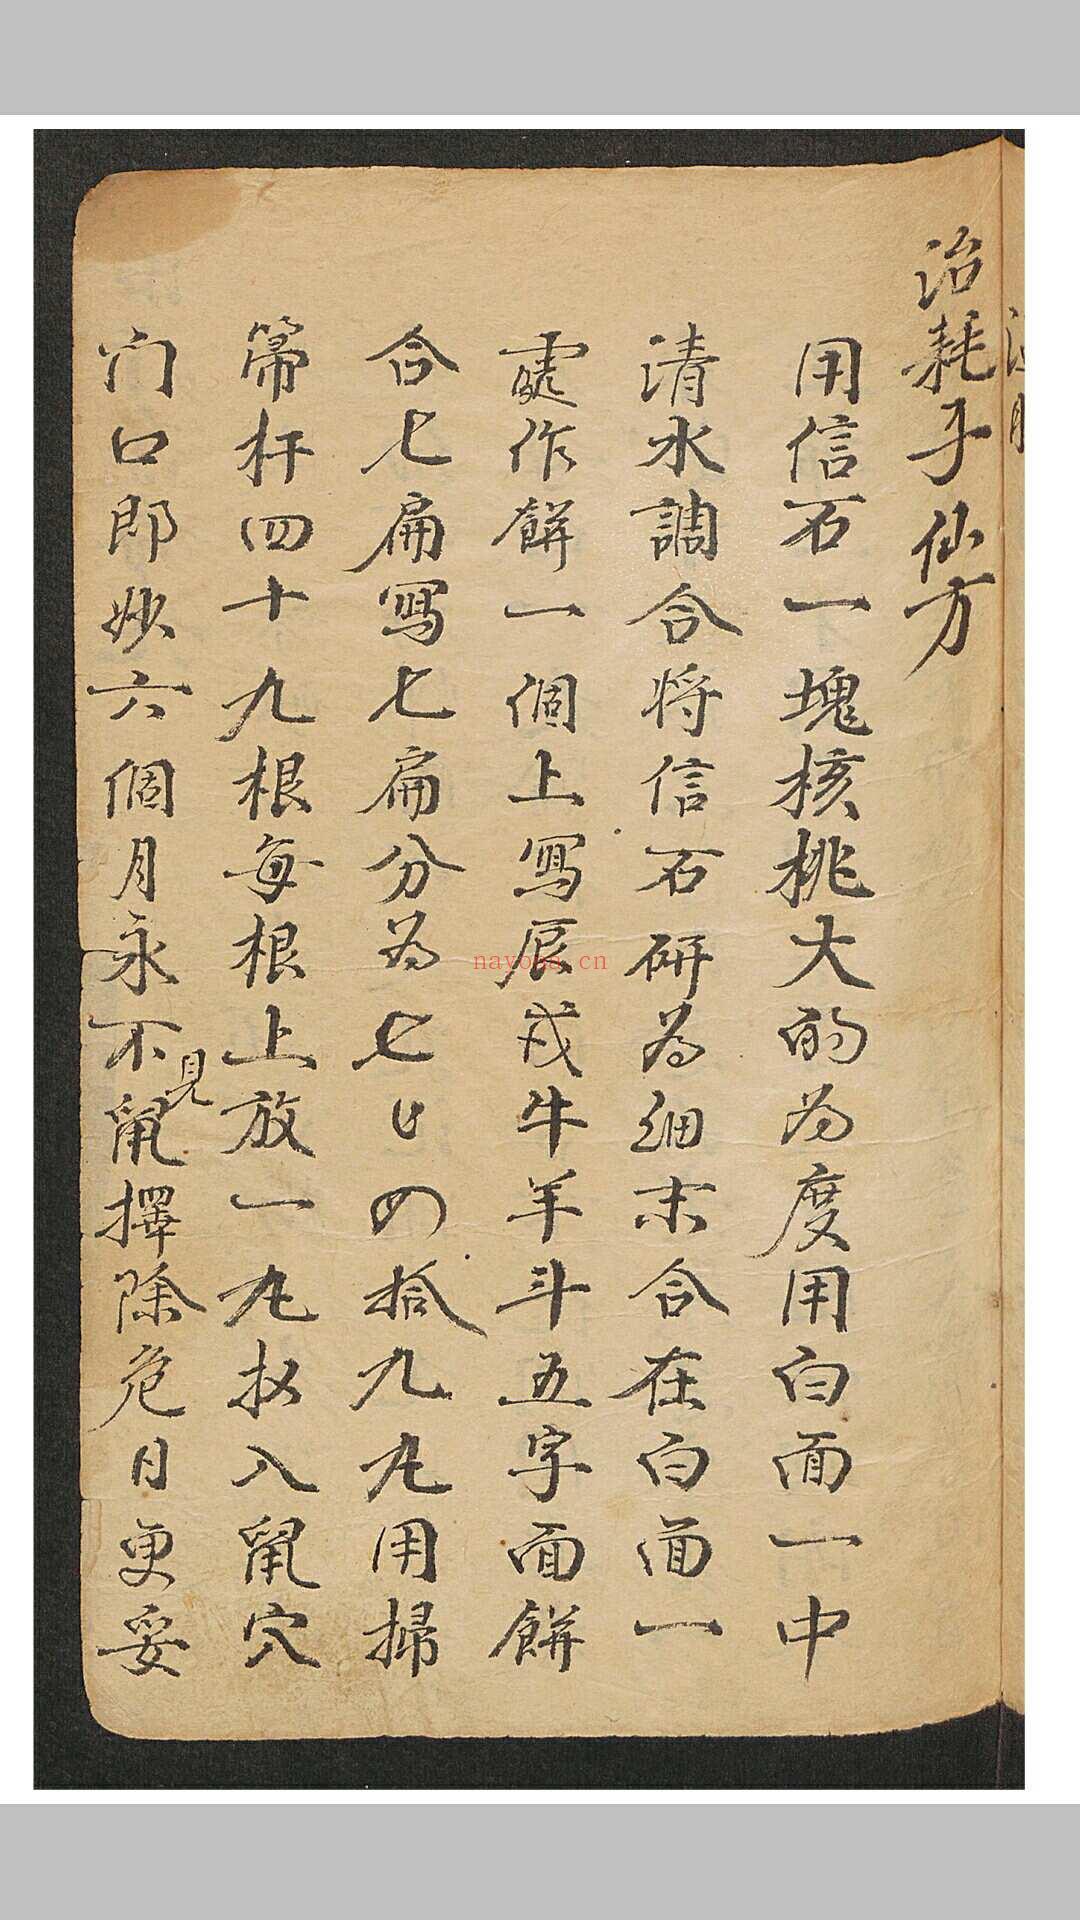 治耗子仙方
用信石一塊核桃大的为度用白面一中
清水調合将信石研为细末合在白面一
處作餅一個上寫辰戌牛羊斗五字面餅
合七扁寫七扁分为七七四拾九丸用掃
箒杆四十九根每根上放一丸扠入鼠穴
门口即妙六個月永不見鼠擇除危日更妥
nayona.cn